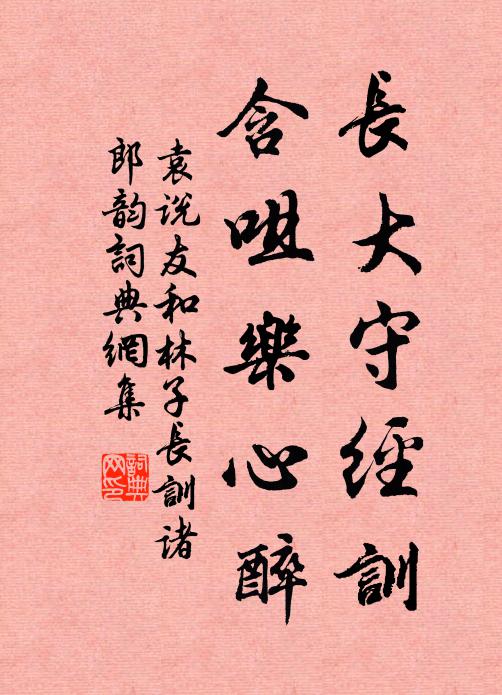 長大守經訓
含咀樂心醉
袁说友和林子長訓诸
郎韵詞典網集
詞典网印